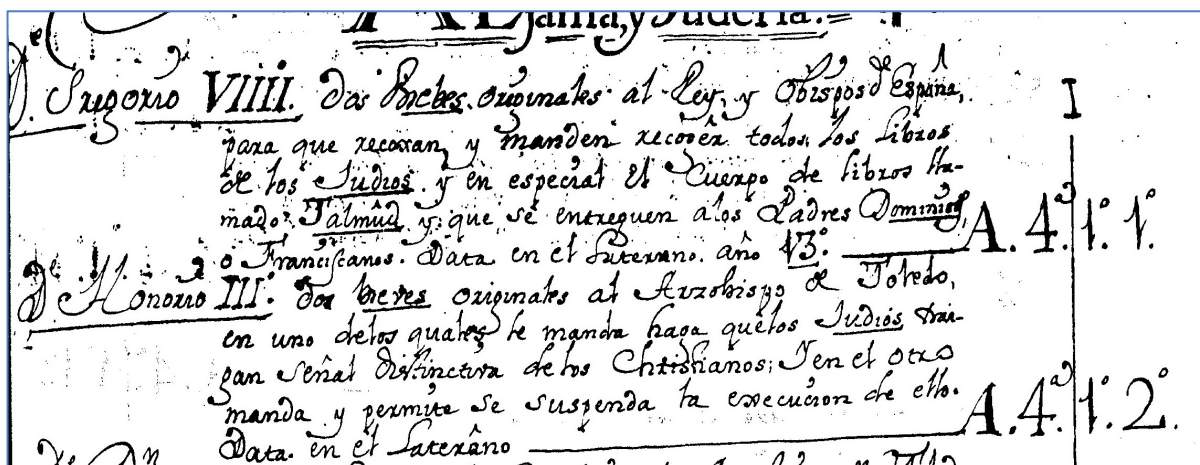 Jama, y Juderia.
De Gregorio VIIII. Dos Brebes originales al Rey, y Obispos de España,
I
para que recoxan, y manden recoger todos los libros
de los Judios. y en especial el Cuerpo de libros lla-
mado Talmud y que se entreguen a los Padres Dominicos,
o Franciscanos. Data en el Laterano. año 13.º A. 4.ª 1.º 1.º
De Honorio III. dos breves originales al Arzobispo de Toledo,
en uno delos quales le manda haga quelos Judios trai-
gan señal distinctiva de los Christianos; Jen el otro
manda y permite se suspenda la execucion de ello.
Data en el Laterano A. 4.ª 1.º 2.º